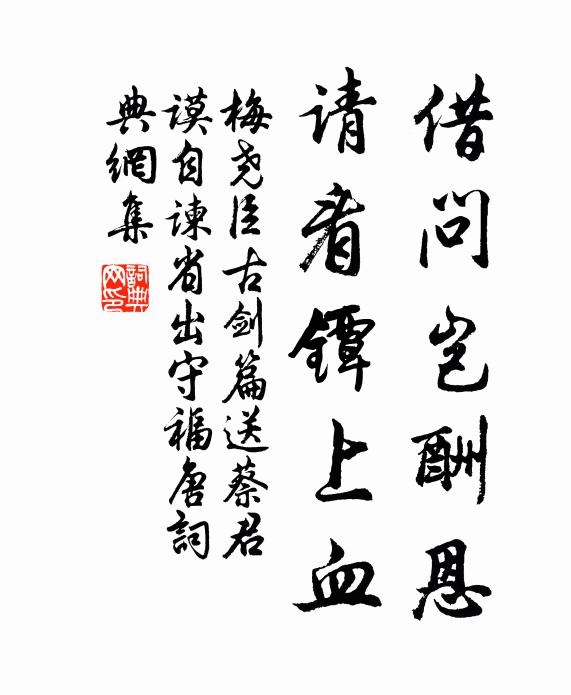 借问岂酬恩
请看镡上血
梅尧臣古劍篇送蔡君
谟自谏省出守福唐詞
典網集
詞典网印